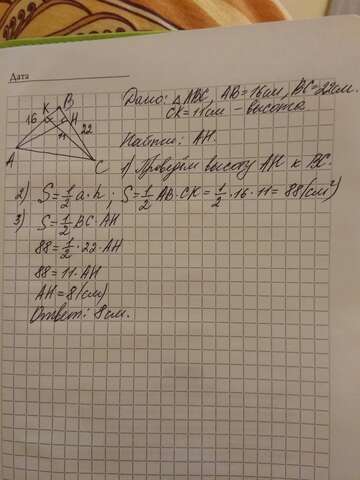 Дата
Дано: △ABC, AB=16см, BC=22см.
CK=11см - высота
Найти: AH.
K B H
16 22
11
A C
1) Проведём высоту AH к BC.
2) S=1/2 a·h; S=1/2 AB·CK=1/2·16·11=88(см²)
3) S=1/2 BC·AH
88=1/2·22·AH
88=11·AH
AH=8(см)
Ответ: 8см.